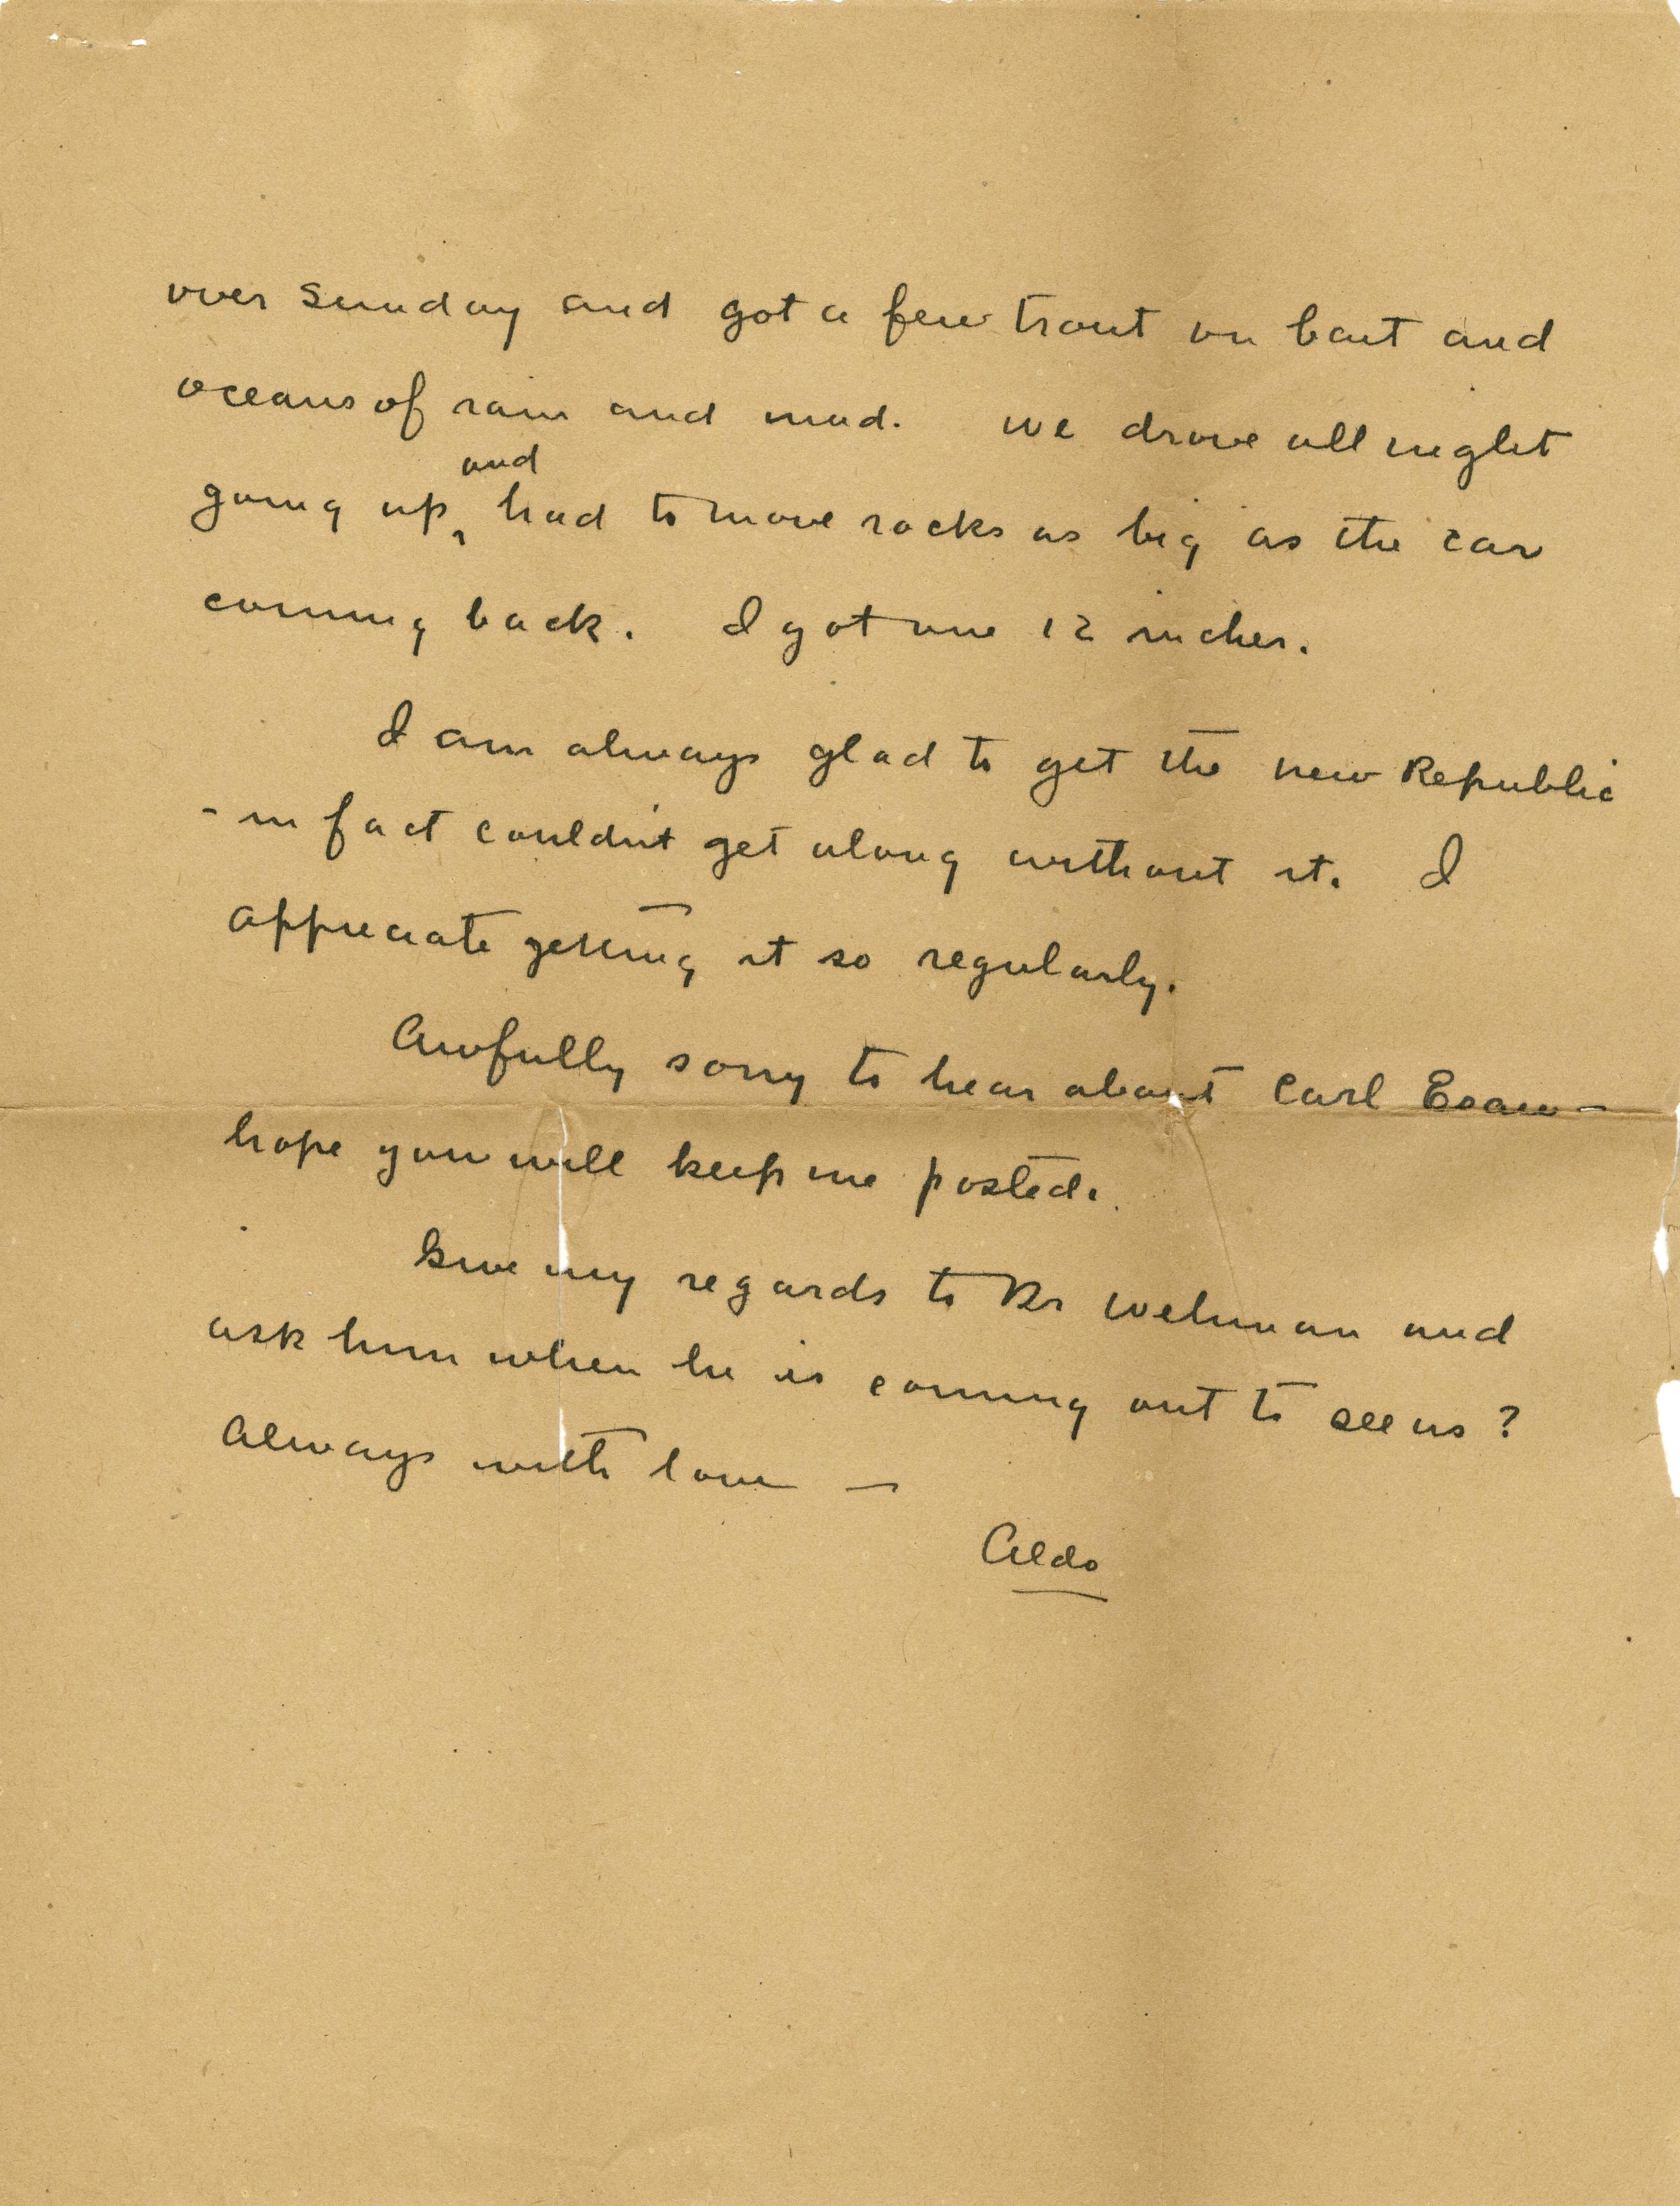 over Sunday and got a few trout on bait and
oceans of rain and mud. We drove all night
and
going up, had to move rocks as big as the car
coming back. I got one 12 inches.
I am always glad to get the New Republic
- in fact couldn't get along without it. I
appreciate getting it so regularly.
Awfully sorry to hear about Carl
hope you will keep me posted.
Give my regards to Wehman and
ask him when he is coming out to see us?
Always with love —
Aldo